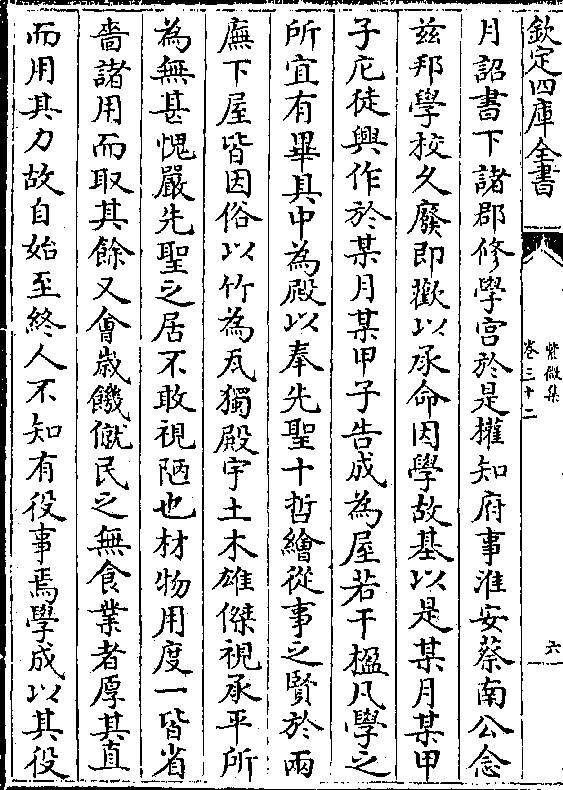 欽定四庫全書
紫微集
卷三十二
六
月詔書下諸郡修學宫於是權知府事淮安蔡南公念
兹邦學校久廢即歡以承命因學故基以是某月某甲
子庀徒興作於某月某甲子告成為屋若干楹凡學之
所宜有畢具中為殿以奉先聖十哲繪從事之賢於兩
廡下屋皆因俗以竹為瓦獨殿宇土木雄傑視承平所
為無甚愧嚴先聖之居不敢視陋也材物用度一皆省
嗇諸用而取其餘又會歲饑僦民之無食業者厚其直
而用其力故自始至終人不知有役事焉學成以其役